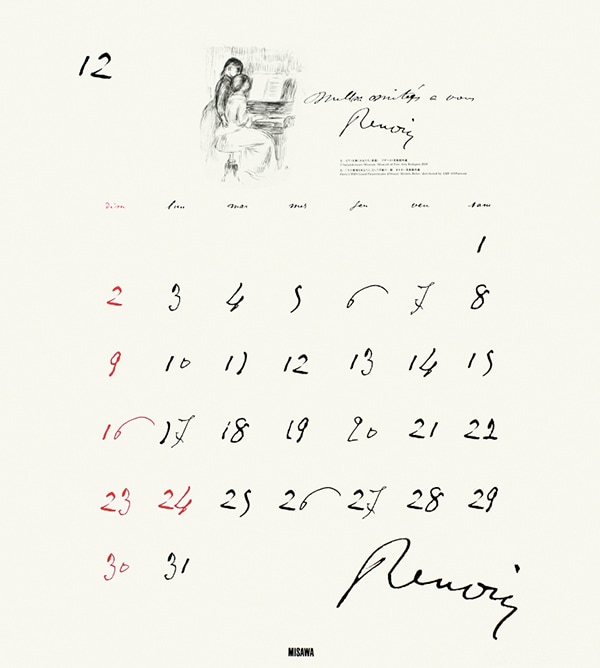 12
Milles amitiés a vous
Renoir
dim lun mar mer jeu ven sam
1
2 3 4 5 6 7 8
9 10 11 12 13 14 15
16 17 18 19 20 21 22
23 24 25 26 27 28 29
30 31
Renoir
MISAWA